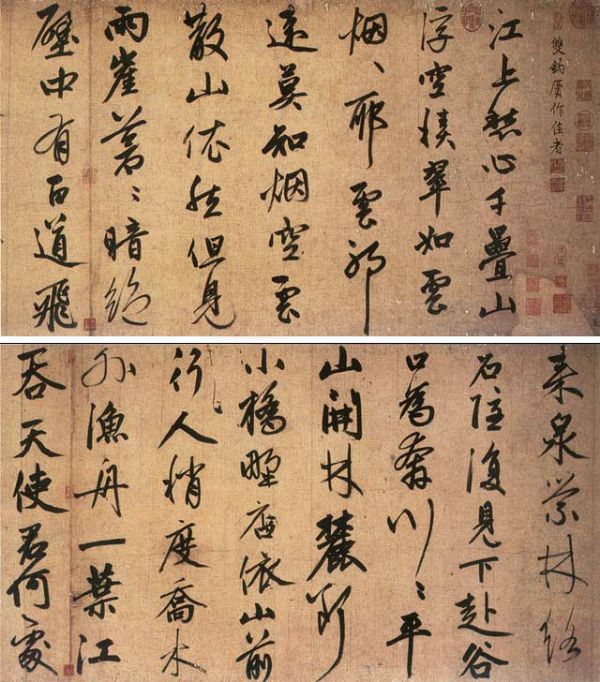 雙鈎作佳者
江上愁心千疊山
浮空積翠如雲
烟〻耶雲邪
遠莫知烟空雲
散山依然但見
兩崖蒼〻暗絶
壁中有百道飛
來泉縈林絡
石隱復見下赴谷
口爲奔川〻平
山開林麓斷
小橋野店依山前
行人稍度喬木
外漁舟一葉江
吞天使君何處